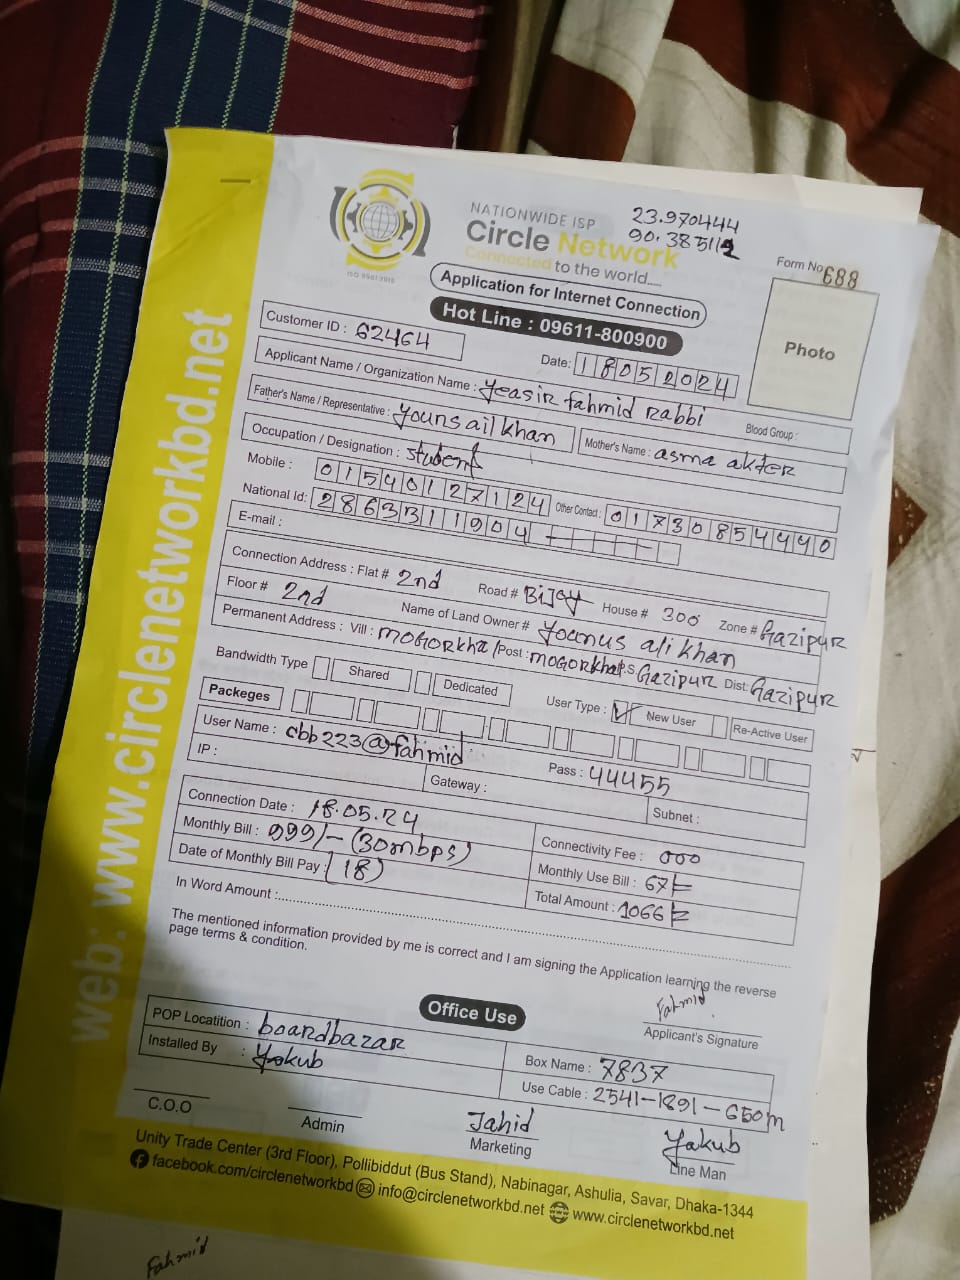 NATIONWIDE ISP
Circle Network
Connected to the world.....
23.970444
90.385112
Form No 688
Application for Internet Connection
Hot Line : 09611-800900
Photo
Customer ID : 62464
Date: 18052024
Applicant Name / Organization Name : Yeasir fahmid Rabbi
Blood Group :
Father's Name / Representative : Youns ail khan
Mother's Name : asma akter
Occupation / Designation : Student
Mobile : 01540127124 Other Contact : 01730854440
National Id: 2863311904
E-mail :
Connection Address : Flat # 2nd Road # Bijoy House # 300 Zone # Gazipur
Floor # 2nd Name of Land Owner # Younus ali khan
Permanent Address : Vill : MOGORKHAl Post : MOGORkhal P.S Gazipur Dist: Gazipur
Bandwidth Type Shared Dedicated User Type : New User Re-Active User
Packeges
User Name : cbb223@fahmid Pass : 44455
IP : Gateway : Subnet :
Connection Date : 18.05.24 Connectivity Fee : 000
Monthly Bill : 999/- (30mbps) Monthly Use Bill : 67/=
Date of Monthly Bill Pay : (18) Total Amount : 1066/=
In Word Amount :
The mentioned information provided by me is correct and I am signing the Application learning the reverse
page terms & condition.
Fahmid
Applicant's Signature
Office Use
POP Locatition : boardbazar Box Name : 7837
Installed By : Yakub Use Cable : 2541-1891-650m
C.O.O Admin
Jahid
Marketing
Yakub
Line Man
Unity Trade Center (3rd Floor), Pollibiddut (Bus Stand), Nabinagar, Ashulia, Savar, Dhaka-1344
facebook.com/circlenetworkbd info@circlenetworkbd.net www.circlenetworkbd.net
web: www.circlenetworkbd.net
Fahmid